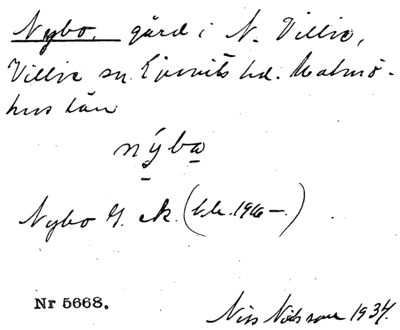 Nybo, gård i N. Villie,
Villie sn. Ljunits hd. Malmö-
hus län
nýba
Nybo G. K. (bl. 1916–.)
Nr 5668.
Nils Nilsson 1934.